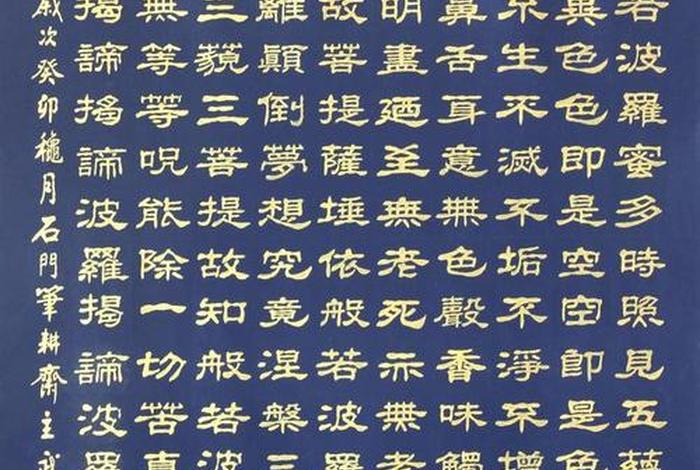 若波羅蜜多時照見五蘊
異色色即是空空即是色
不生不滅不垢不淨不增
鼻舌耳意無色聲香味觸
明盡廼至無老死亦無老
故菩提薩埵依般若波羅
離顛倒夢想究竟涅槃三
三藐三菩提故知般若波
無等等呪能除一切苦真
揭諦揭諦波羅揭諦波羅
歲次癸卯穐月石門筆耕齋主